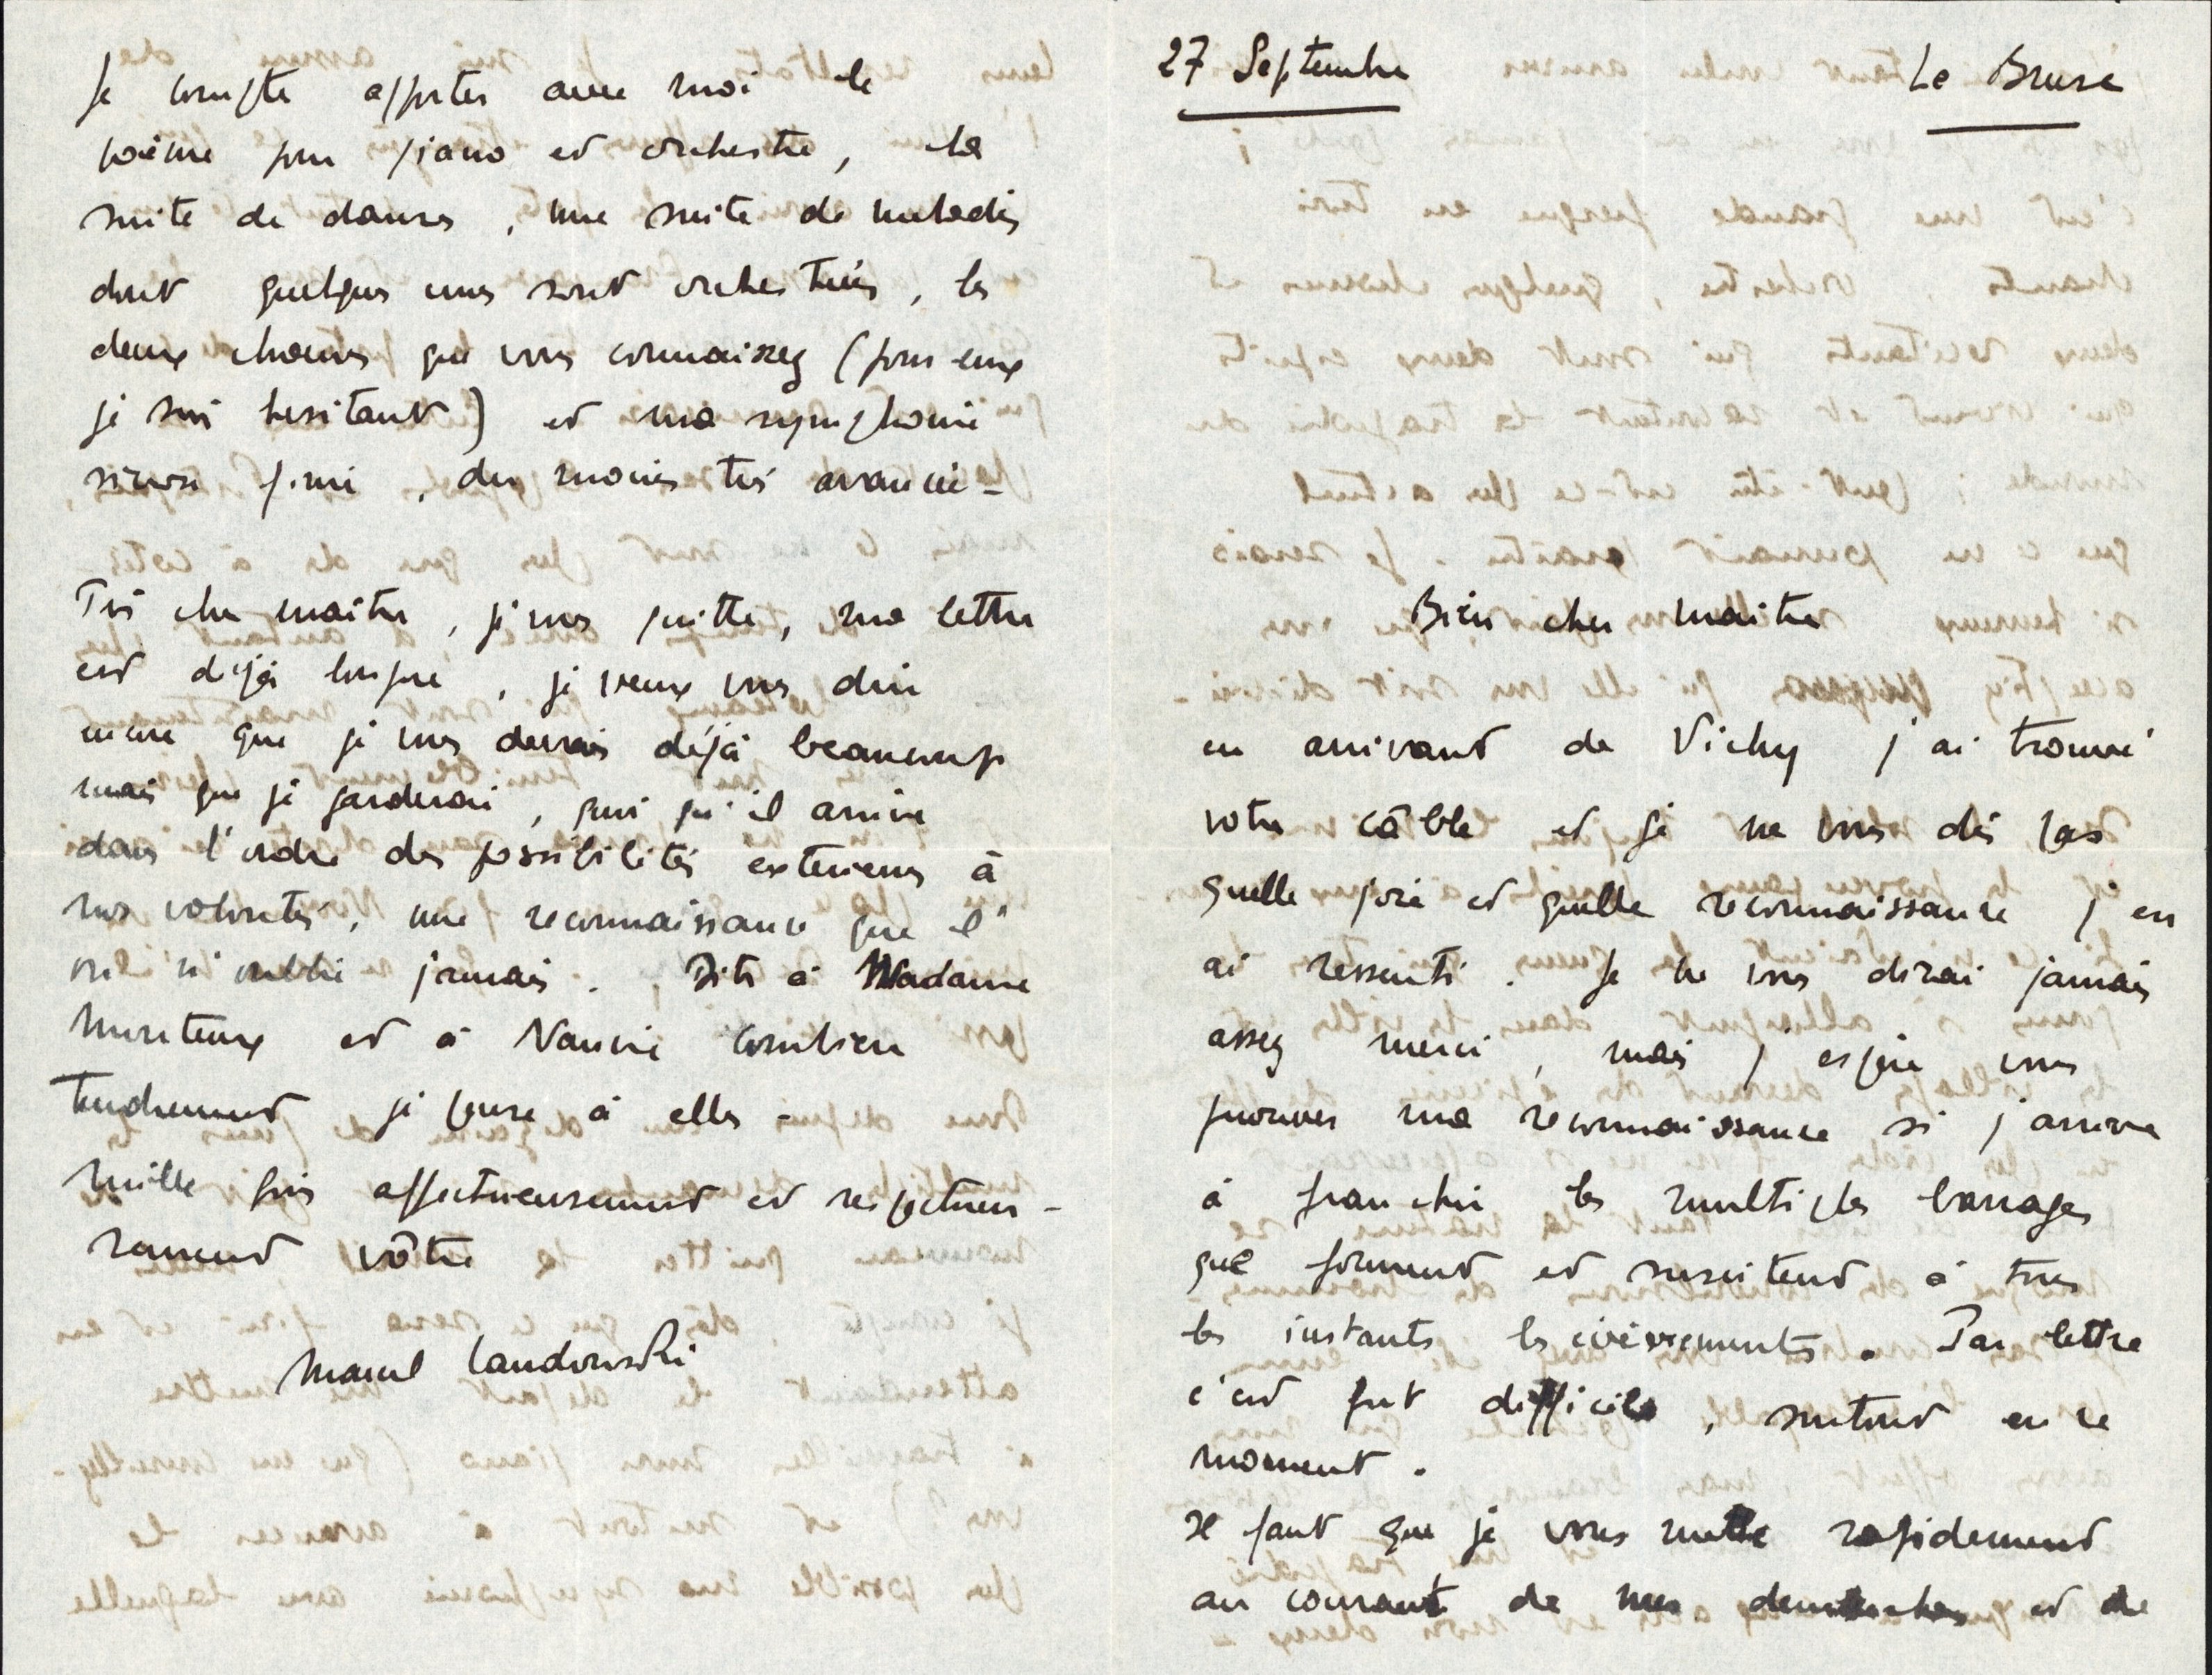 27 Septembre Le Brusc
Bien cher Maitre
en arrivant de Vichy j'ai trouvé
votre câble et je ne vous dis pas
quelle joie et quelle reconnaissance j'en
ai ressenti. Je ne vous dirai jamais
assez merci, mais j'espère vous
prouver ma reconnaissance si j'arrive
à franchir les multiples barrages
que forment et suscitent à tous
les instants les évènements. Par lettre
c'est fort difficile, surtout en ce
moment.
Il faut que je vous mette rapidement
au courant de mes demarches et de
Je compte apporter avec moi le
poème pour piano et orchestre, la
suite de danses, une suite de melodies
dont quelques unes sont orchestrées, les
deux choeurs que vous connaissez (pour eux
je suis hesitant) et ma symphonie
sinon finie, du moins très avancée -
Très cher maitre, je vous quitte, ma lettre
est déjà longue, je veux vous dire
encore que je vous devais déjà beaucoup
mais que je garderai, quoi qu'il arrive
dans l'ordre des possibilités exterieures à
nos volontés, une reconnaissance que l'
on n'oublie jamais. Dites à Madame
Monteux et à Nancie combien
tendrement je pense à elles -
Mille fois affectueusement et respectueu-
sement vôtre
Marcel Landowski